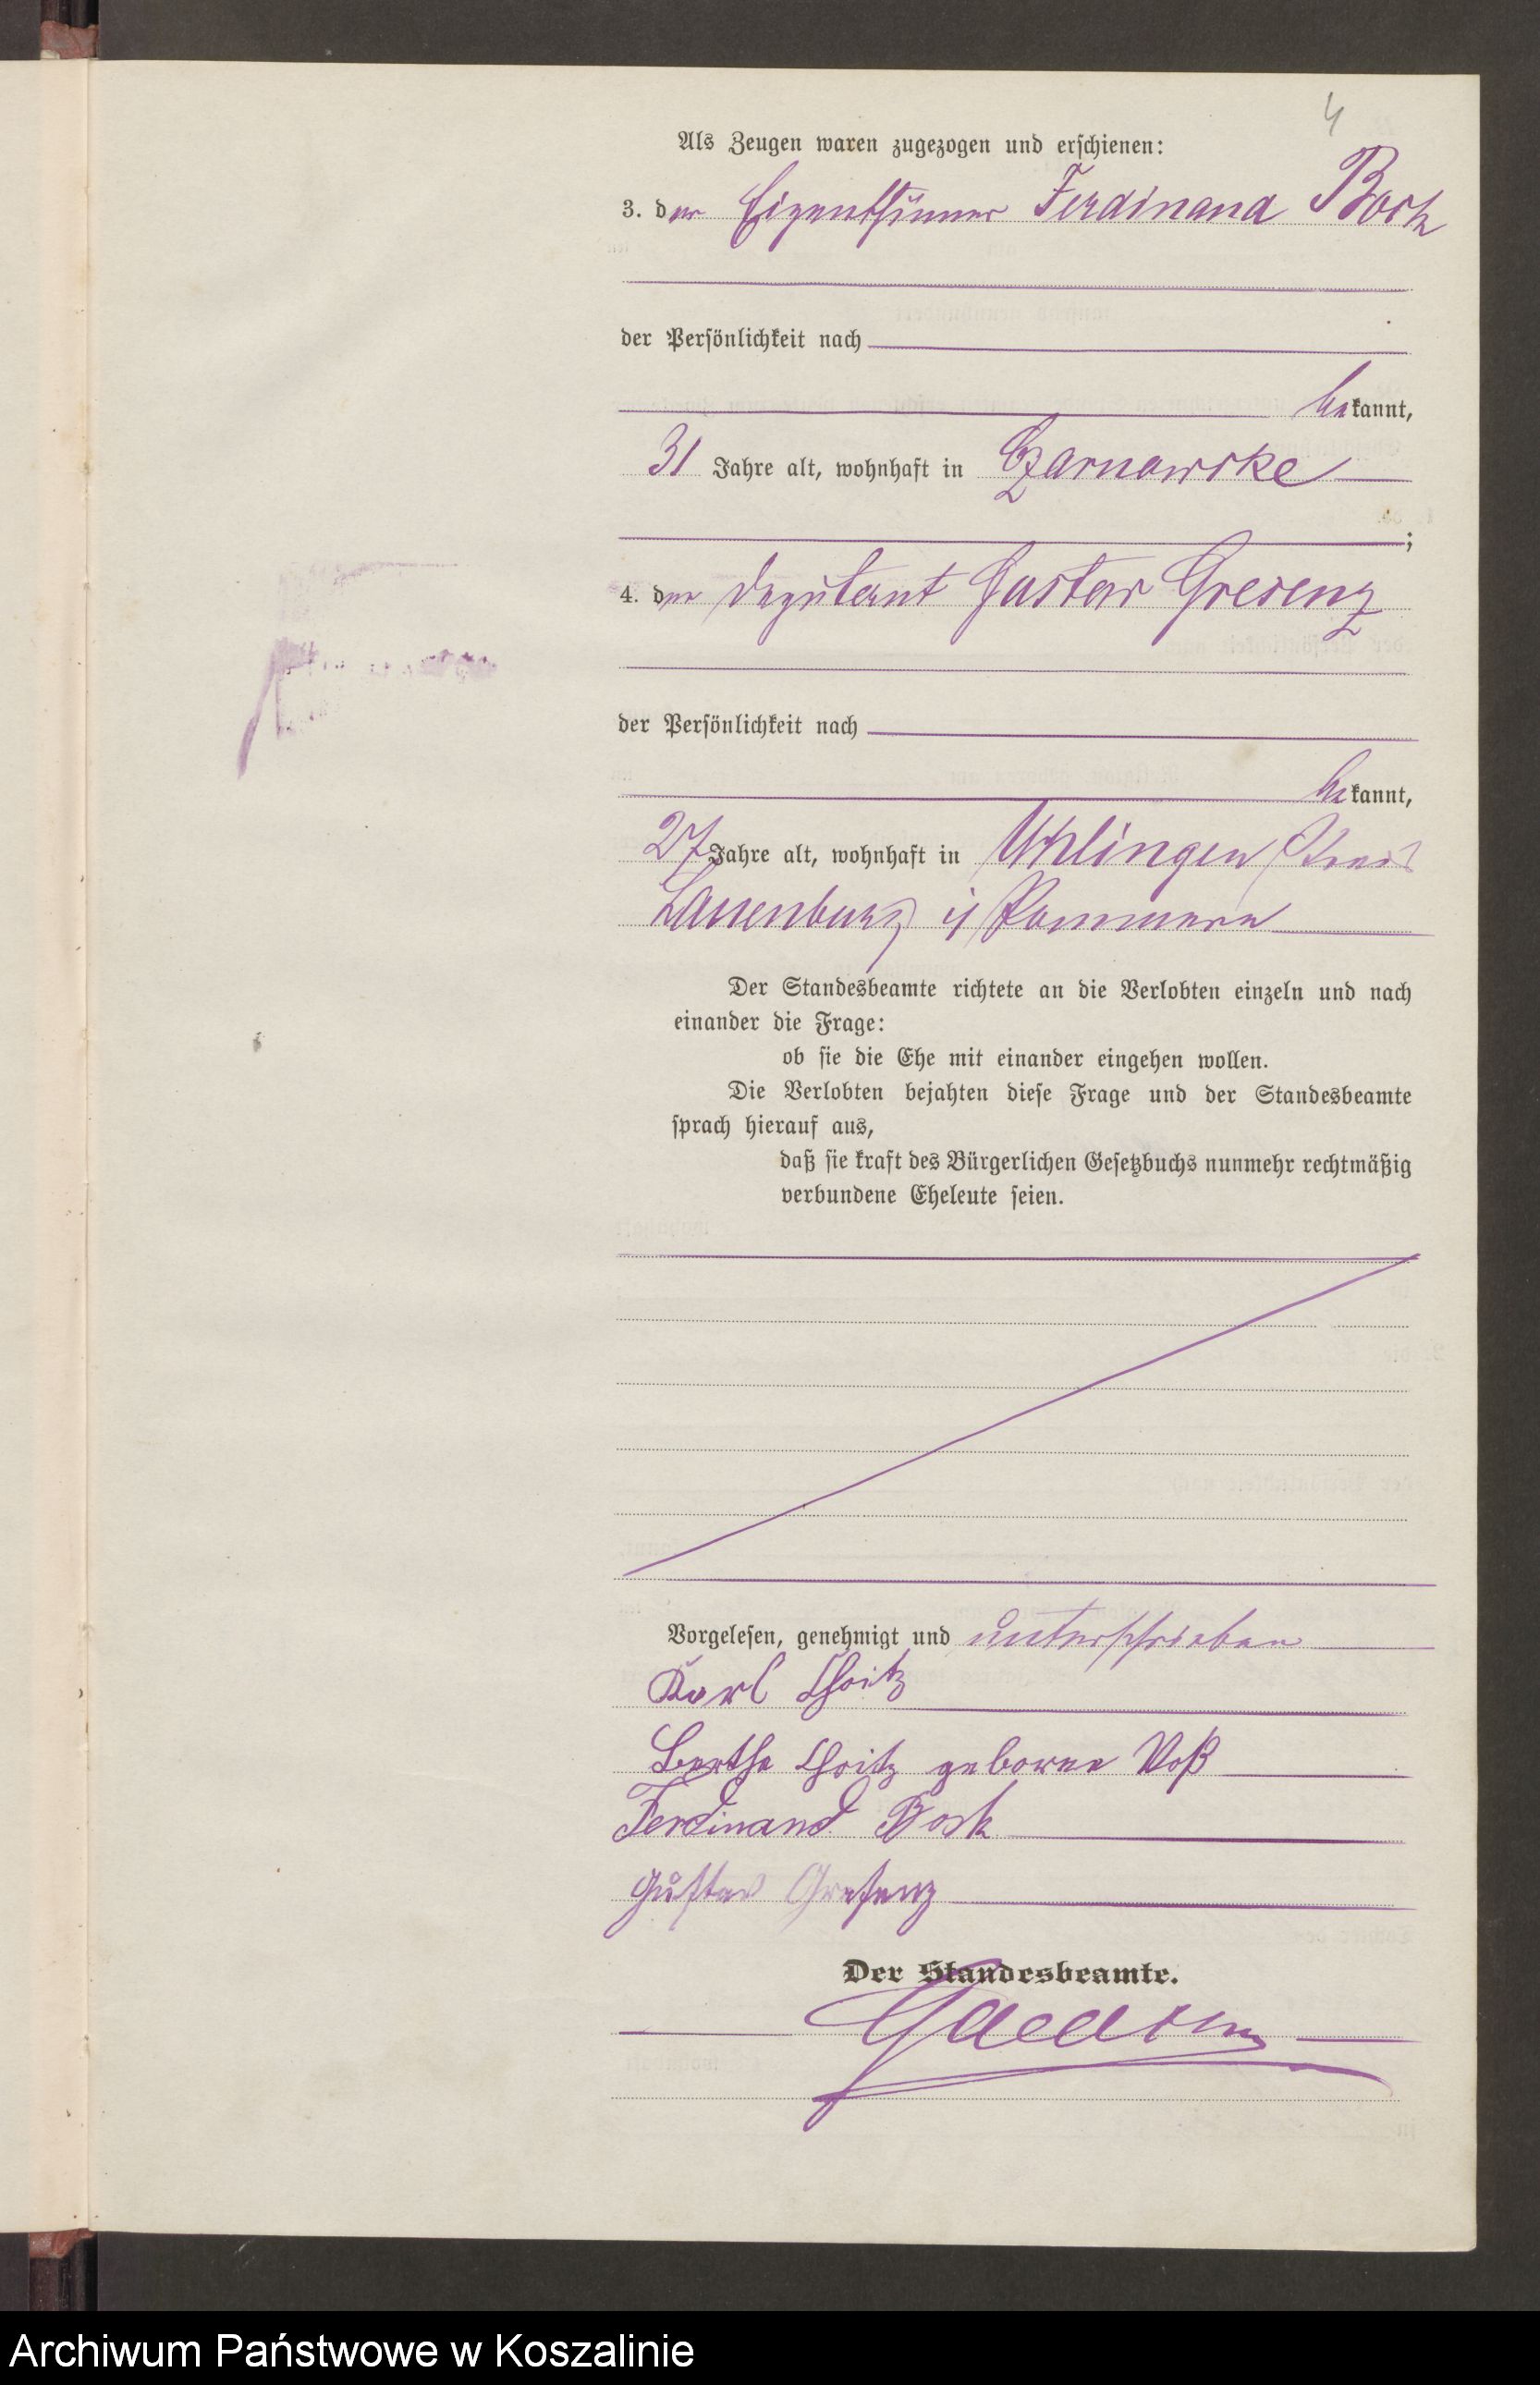 4
Als Zeugen waren zugezogen und erschienen:
3. der Eigenthümer Ferdinand Bock
der Persönlichkeit nach
bekannt,
31 Jahre alt, wohnhaft in Czarnowske
;
4. der Deputant Gustav Gresenz
der Persönlichkeit nach
bekannt,
27 Jahre alt, wohnhaft in Uhlingen Kreis
Lauenburg i/ Pommern
Der Standesbeamte richtete an die Verlobten einzeln und nach
einander die Frage:
ob sie die Ehe mit einander eingehen wollen.
Die Verlobten bejahten diese Frage und der Standesbeamte
sprach hierauf aus,
daß sie kraft des Bürgerlichen Gesetzbuchs nunmehr rechtmäßig
verbundene Eheleute seien.
Vorgelesen, genehmigt und unterschrieben
Karl
Bertha geborene Voß
Ferdinand Bock
Gustav Gresenz
Der Standesbeamte.
Archiwum Państwowe w Koszalinie